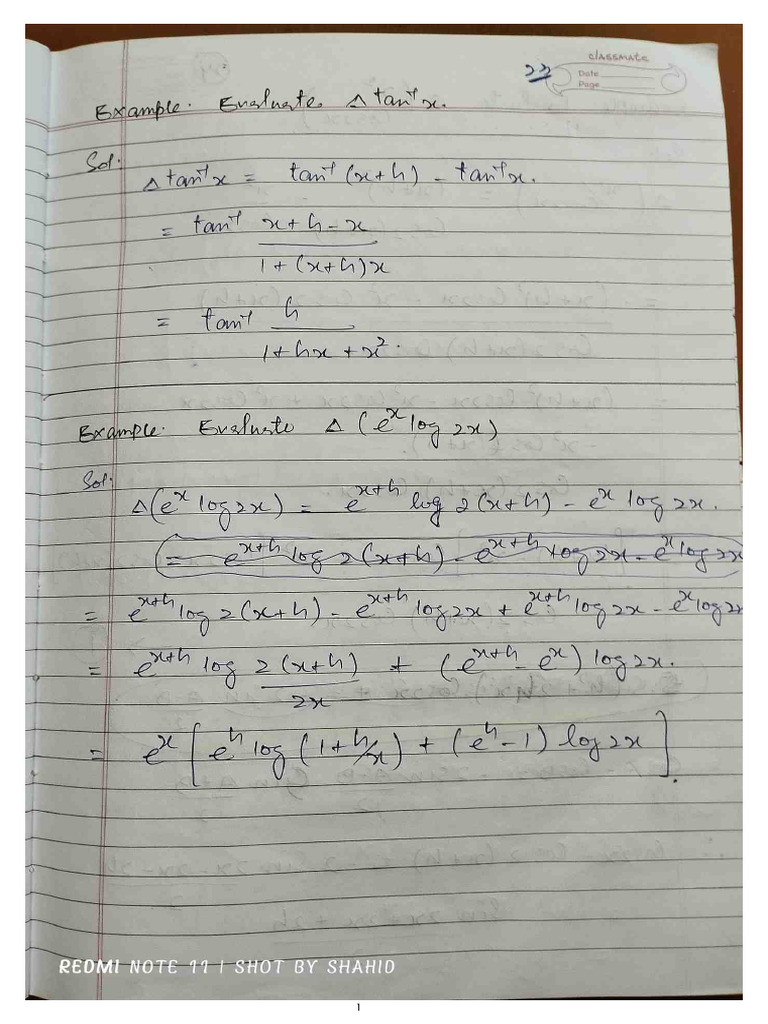 classmate
22
Date
Page
Example. Evaluate. Δ tan⁻¹x.
Sol.
Δ tan⁻¹x = tan⁻¹(x+h) - tan⁻¹x.
= tan⁻¹ (x+h-x)/(1+(x+h)x)
= tan⁻¹ h/(1+hx+x²).
Example. Evaluate Δ (eˣ log 2x)
Sol.
Δ(eˣ log 2x) = eˣ⁺ʰ log 2(x+h) - eˣ log 2x.
= eˣ⁺ʰ log 2(x+h) - eˣ⁺ʰ log 2x - eˣ log 2x
= eˣ⁺ʰ log 2(x+h) - eˣ⁺ʰ log 2x + eˣ⁺ʰ log 2x - eˣ log 2x
= eˣ⁺ʰ log 2(x+h)/2x + (eˣ⁺ʰ - eˣ) log 2x.
= eˣ [eʰ log (1+h/x) + (eʰ-1) log 2x].
REDMI NOTE 11 | SHOT BY SHAHID
1